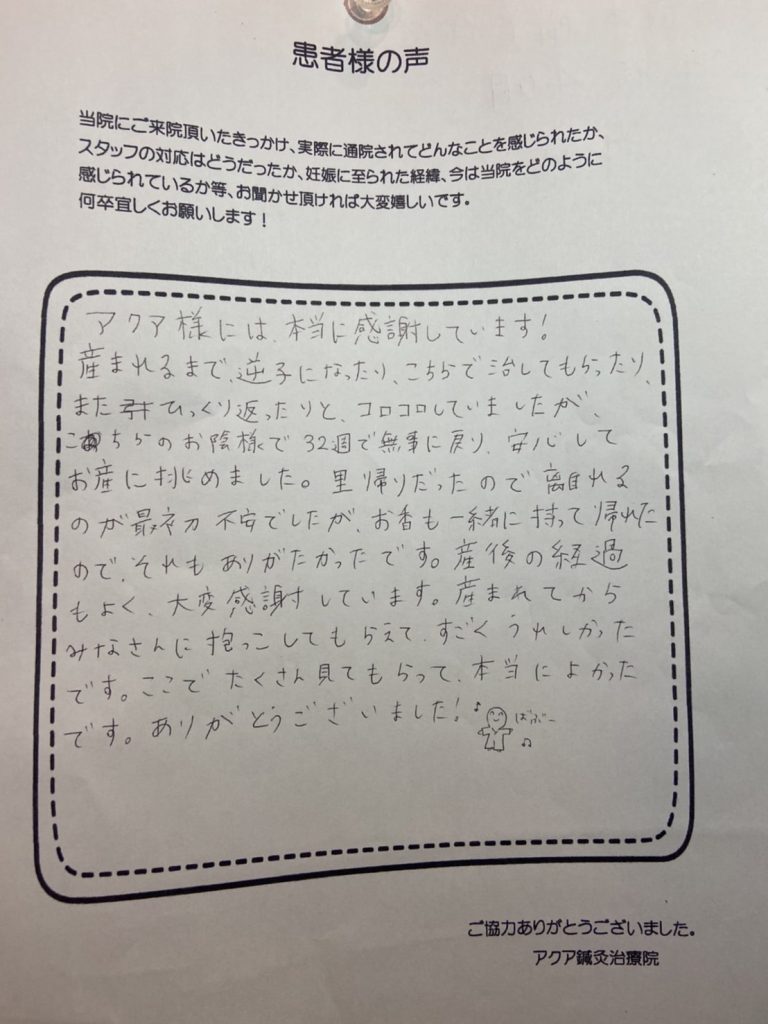 患者様の声
当院にご来院頂いたきっかけ、実際に通院されてどんなことを感じられたか、
スタッフの対応はどうだったか、妊娠に至られた経緯、今は当院をどのように
感じられているか等、お聞かせ頂ければ大変嬉しいです。
何卒宜しくお願いします！
アクア様には、本当に感謝しています！
産まれるまで、逆子になったり、こちらで治してもらったり、
また ひっくり返ったりと、コロコロしていましたが、
こちらのお陰様で32週で無事に戻り、安心して
お産に挑めました。里帰りだったので離れる
のが最初 不安でしたが、お香も一緒に持って帰れた
ので、それもありがたかったです。産後の経過
もよく、大変感謝しています。産まれてから
みなさんに抱っこしてもらえて、すごくうれしかった
です。ここでたくさん見てもらって、本当によかった
です。ありがとうございました！
ばぶー
ご協力ありがとうございました。
アクア鍼灸治療院